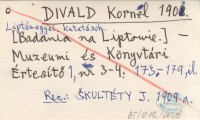 DIVALD Kornél 190
Liptómegyei kutatások.
[Badania na Liptowie.] —
Muzeumi és Könyvtári
Értesítő 1, nr 3-4: 173-179, il.
Rec.: ŠKULTÉTY J. 1909 a.